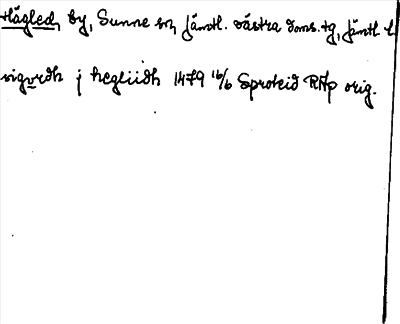 Hägled, by, Sunne sn, Jämtl. västra doms. tg, Jämtl. l.
sigurdh j hegliidh 1479 16/6 Sproteid RAp orig.